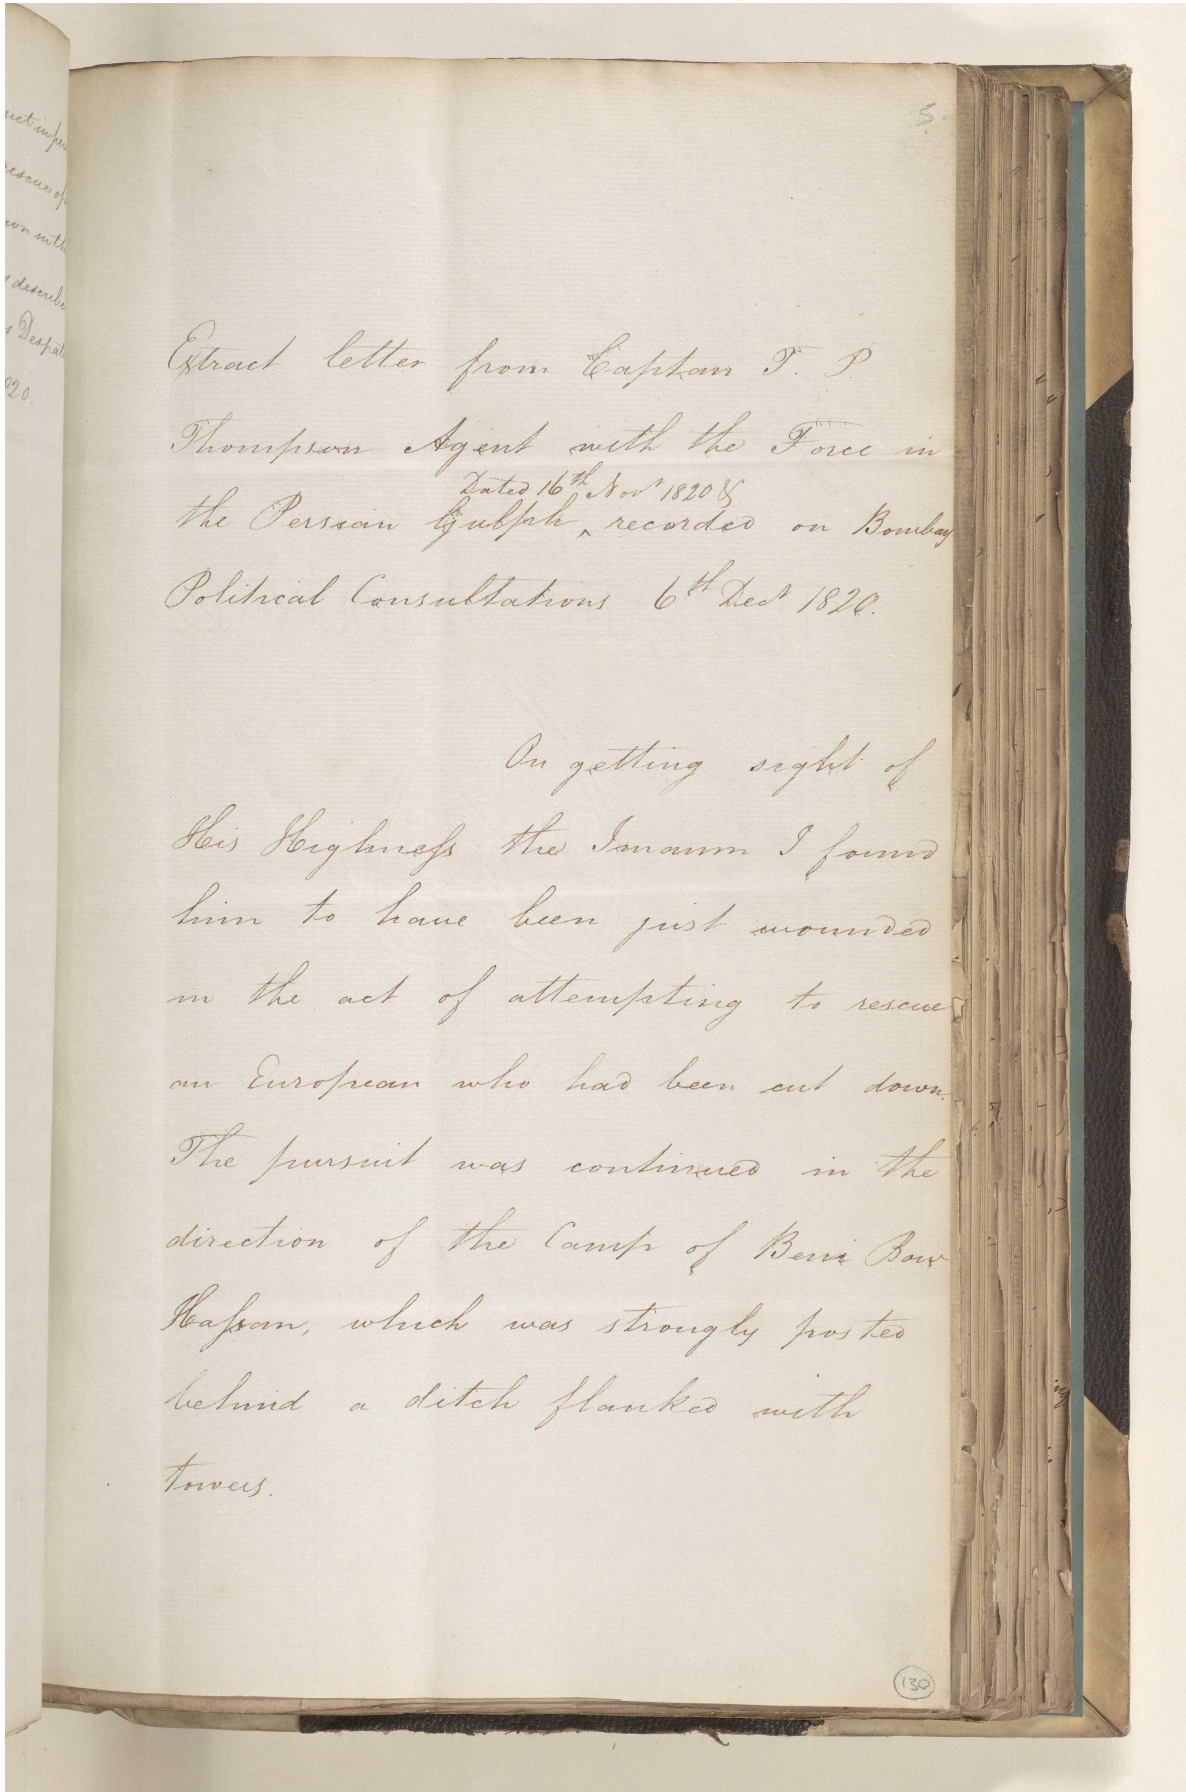 5
Extract letter from Captan T. P.
Thompson Agent with the Force in
Dated 16th Novr 1820 &
the Persian Gulph ^ recorded on Bombay
Political Consultations 6th Decr 1820.
On getting sight of
His Highness the Imaum I found
him to have been just wounded
in the act of attempting to rescue
an European who had been cut down.
The pursuit was continued in the
direction of the Camp of Beni Bow
Hassan, which was strongly posted
behind a ditch flanked with
towers.
130
rescue of
describe
Despat
20.